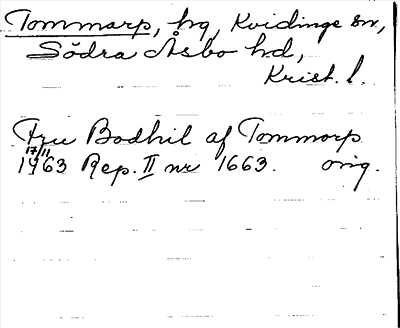 Tommarp, hg, Kvidinge sn,
Södra Åsbo hd,
Krist. l.
Fru Bodhil af Tommarp
17/11
1463 Rep. II nr 1663. orig.